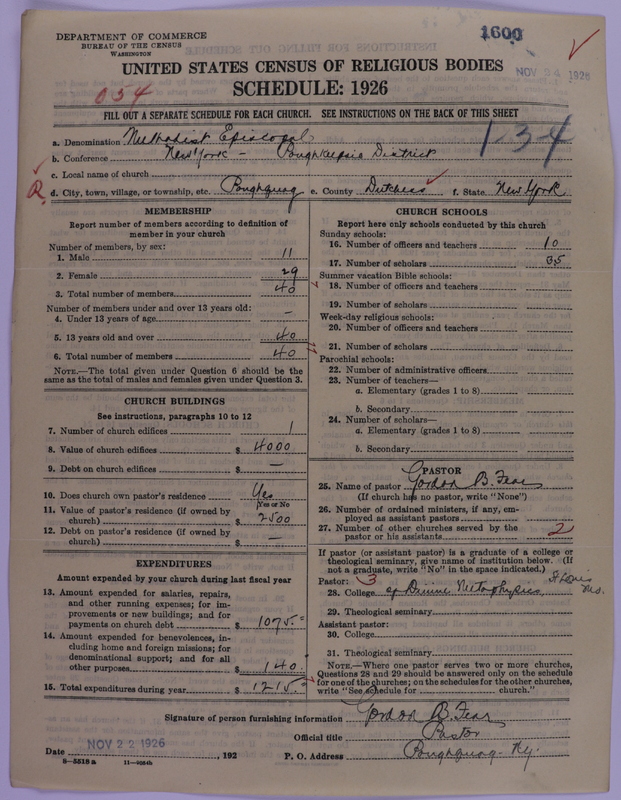 DEPARTMENT OF COMMERCE
BUREAU OF THE CENSUS
WASHINGTON
1600
NOV 24 1926
UNITED STATES CENSUS OF RELIGIOUS BODIES
SCHEDULE: 1926
054
FILL OUT A SEPARATE SCHEDULE FOR EACH CHURCH. SEE INSTRUCTIONS ON THE BACK OF THIS SHEET
1-3-4
a. Denomination Methodist Episcopal
b. Conference New York - Poughkeepsie District
c. Local name of church
d. City, town, village, or township, etc. Poughquag e. County Dutchess f. State New York
MEMBERSHIP
Report number of members according to definition of
member in your church
Number of members, by sex:
1. Male 11
2. Female 29
3. Total number of members 40
Number of members under and over 13 years old:
4. Under 13 years of age —
5. 13 years old and over 40
6. Total number of members 40
NOTE.—The total given under Question 6 should be
the same as the total of males and females given under Question 3.
CHURCH BUILDINGS
See instructions, paragraphs 10 to 12
7. Number of church edifices 1
8. Value of church edifices $ 4000
9. Debt on church edifices $ —
10. Does church own pastor's residence Yes
Yes or No
11. Value of pastor's residence (if owned by
church) $ 2500
12. Debt on pastor's residence (if owned by
church) $ —
EXPENDITURES
Amount expended by your church during last fiscal year
13. Amount expended for salaries, repairs,
and other running expenses; for im-
provements or new buildings; and for
payments on church debt $ 1075.
14. Amount expended for benevolences, in-
cluding home and foreign missions; for
denominational support; and for all
other purposes $ 140.
15. Total expenditures during year $ 1215.
CHURCH SCHOOLS
Report here only schools conducted by this church
Sunday schools:
16. Number of officers and teachers 10
17. Number of scholars 35
Summer vacation Bible schools:
18. Number of officers and teachers
19. Number of scholars
Week-day religious schools:
20. Number of officers and teachers
21. Number of scholars
Parochial schools:
22. Number of administrative officers
23. Number of teachers—
a. Elementary (grades 1 to 8)
b. Secondary
24. Number of scholars—
a. Elementary (grades 1 to 8)
b. Secondary
PASTOR
25. Name of pastor Gordon B. Fear
(If church has no pastor, write "None")
26. Number of ordained ministers, if any, em-
ployed as assistant pastors
27. Number of other churches served by the
pastor or his assistants 2
If pastor (or assistant pastor) is a graduate of a college or
theological seminary, give name of institution below. (If
not a graduate, write "No" in the space indicated.)
Pastor: 3
28. College of Divine Metaphysics, St Louis Mo.
29. Theological seminary
Assistant pastor:
30. College
31. Theological seminary
NOTE.—Where one pastor serves two or more churches,
Questions 28 and 29 should be answered only on the schedule
for one of the churches; on the schedules for the other churches,
write "See schedule for church."
Signature of person furnishing information Gordon B. Fear
Official title Pastor
Date NOV 22 1926, 192 P. O. Address Poughquag. N.Y.
8—5518 a